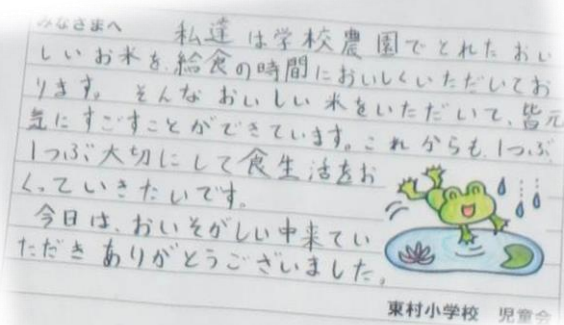 みなさまへ
私達は学校農園でとれたおい
しいお米を給食の時間においしくいただいてお
ります。そんなおいしい米をいただいて、皆元
気にすごすことができています。これからも、1つぶ、
1つぶ大切にして食生活をお
くっていきたいです。
今日は、おいそがしい中来てい
ただきありがとうございました。
東村小学校 児童会